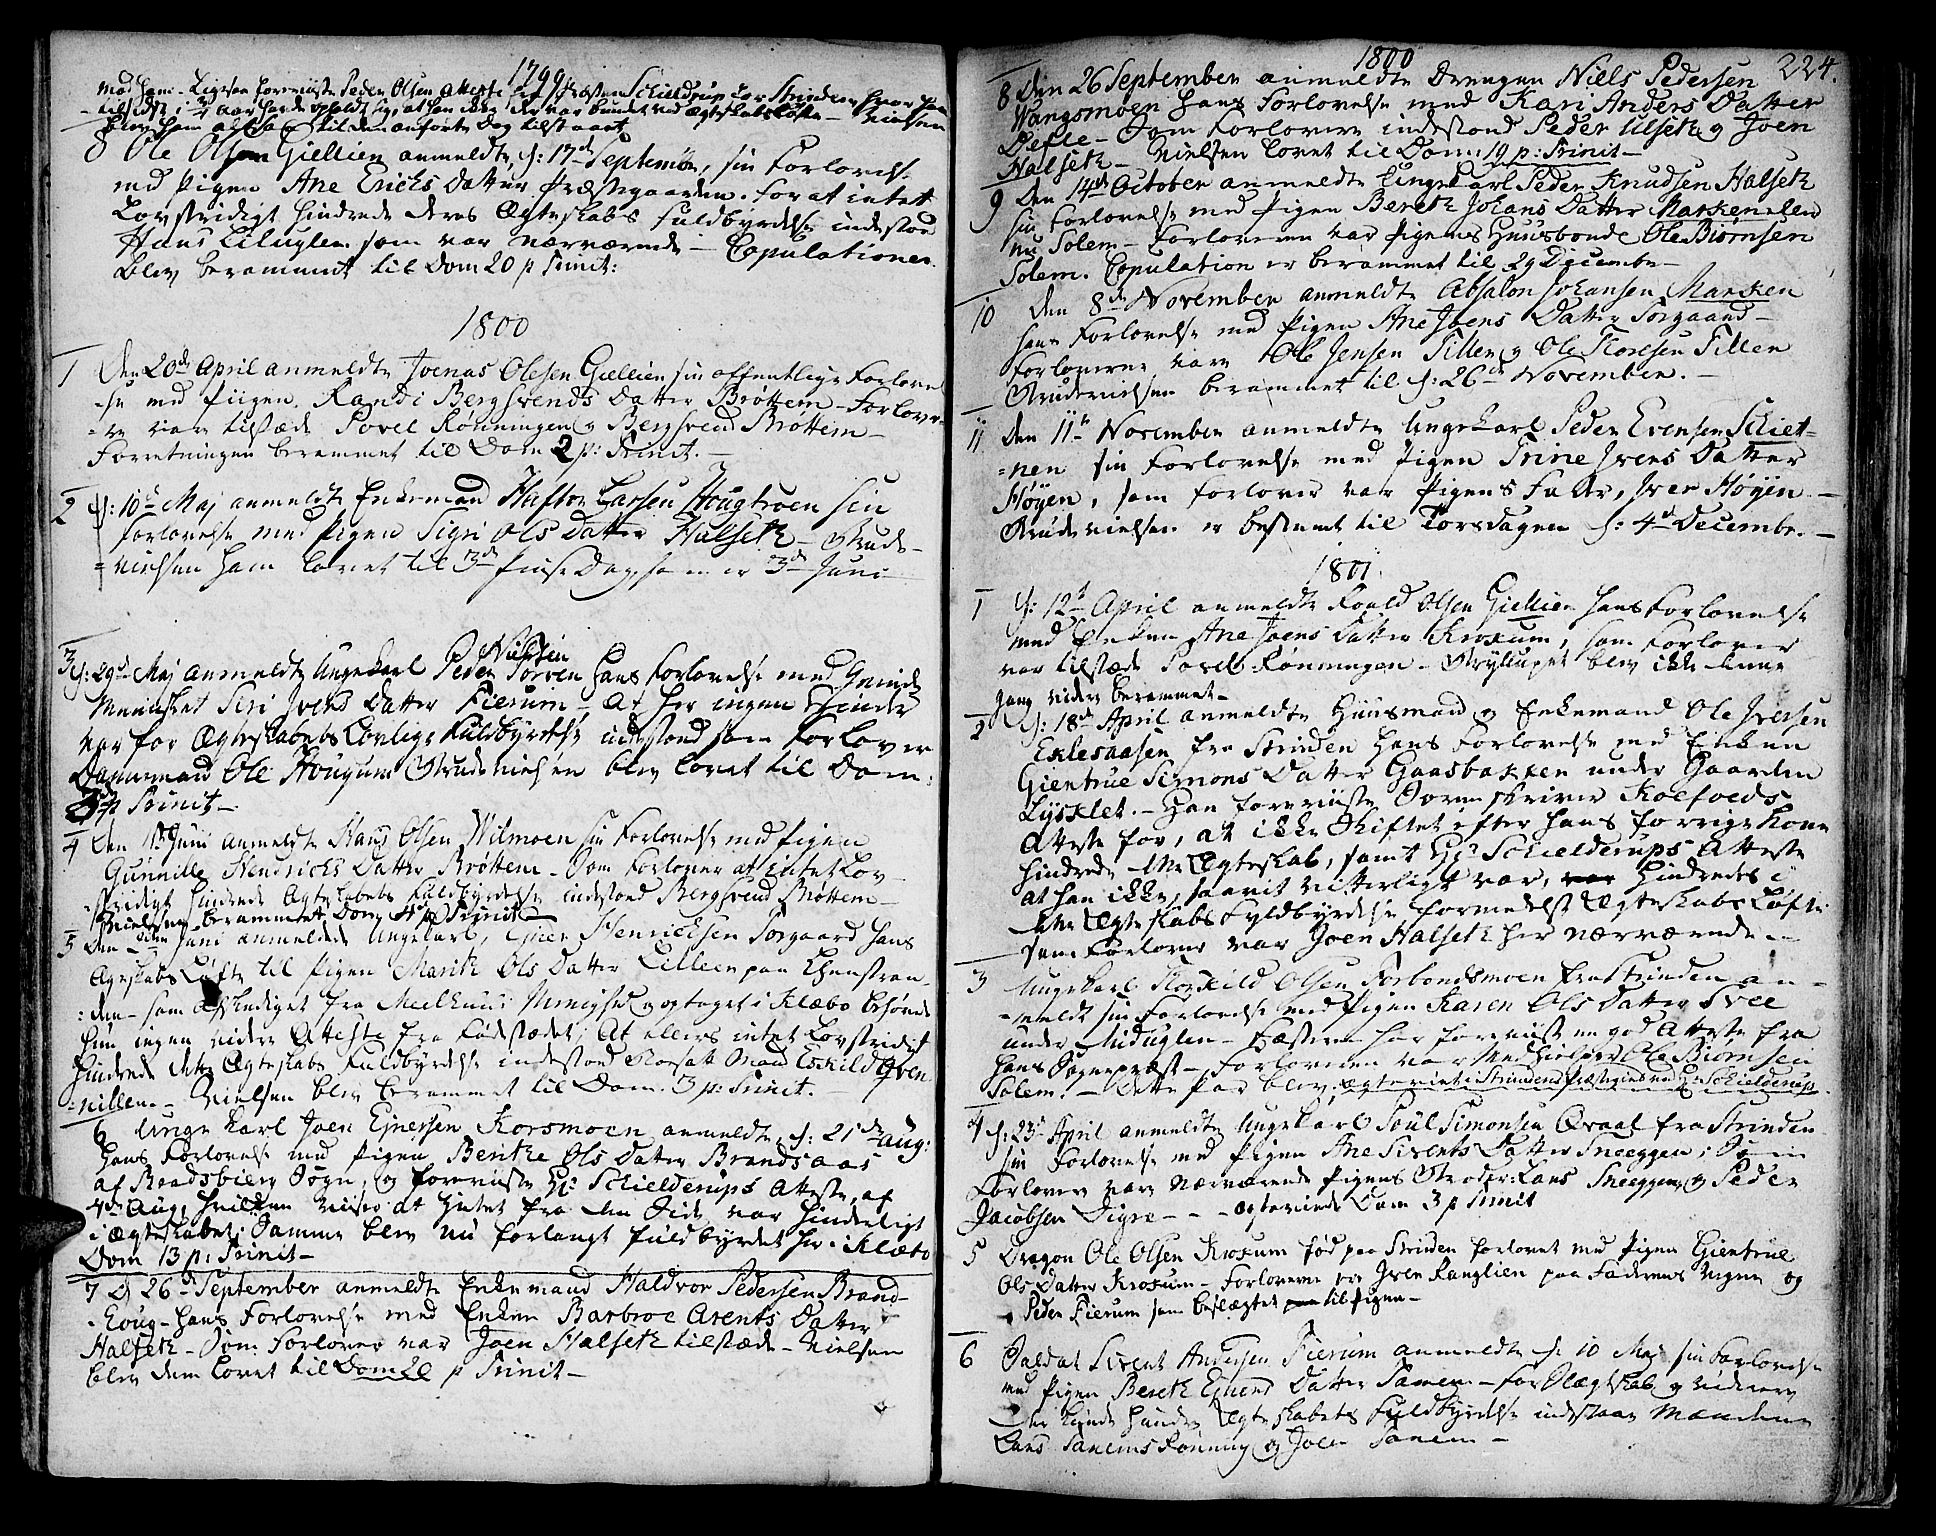 1799
med ham. Ligesaa foreviiste Peder Olsen Atteste fra Præsten Schielderup for Strinden, hvor han
tilsidst i 3/4 aar havde opholdt sig, at han ikke der var bundet ved Ægteskabsløfte — Vielsen
blev ham altsaa til den anførte Dag tilstaaet.
8 Ole Olsen Giellien anmeldte d: 17de Septembr, sin Forlovelse
med Pigen Ane Erichs Datter Præstegaarden. For at intet
Lovstridigt hindrede deres Ægteskabs fuldbyrdelse indestod
Hans Liluglen som var nærværende — Copulationen
blev berammet til Dom 20 p Trinit:
1800
1 Den 20de April anmeldte Joenas Olesen Giellien sin offentlige Forlovel
se med Piigen Randi Bergsvends Datter Brøttem — Forlover-
ne var tilstæde Povel Rønningen og Bergsvend Brøttem —
Forretningen berammet til Dom 2 p: Trinit. —
2 d: 10de Maj anmeldte Enkemand Hafton Larsen Hougtroen sin
Forlovelse med Pigen Sigri Ols Datter Halseth — Brude-
vielsen ham lovet til 3de Pinse Dag, som er 3de Juni
3 d: 29de Maj anmeldte Ungekarl Peder Nielsen Torven hans Forlovelse med Qvinde
Mennisket Siri Ivers Datter Fierum — At her ingen Hinder
var for Ægteskabets Lovlige Fuldbyrdelse indestod som Forlover
Dannemand Ole Hougum Brudevielsen blev lovet til Dom:
3 p Trinit —
4 Den 1ste Juni anmeldte Hans Olsen Wilmoen sin Forlovelse med Pigen
Gunnille Hendrichs Datter Brøttem — Som Forlover at intet Lov
stridigt hindrede Ægteskabets Fuldbyrdelse indestod Bergsvend Brøttem —
Vielsen berammet Dom 4 p Trinit —
5 Den Juni anmeldede Ungekarl, Ejner Henrichsen Torgaard hans
Ægteskabs Løfte til Pigen Marith Ols Datter Lilleen paa Ehenstran
den — som afskediget fra Meelhuus Menighed og optaget i Klæbo behøvede
hun ingen videre Atteste fra Fødestædet; At ellers intet Lovstridigt
hindrede dette Ægteskabs Fuldbyrdelse indestod Korsatt Mand Eskild Qven-
nillen. — Vielsen blev berammet til Dom. 3 p: Trinit. —
6 Unge Karl Joen Ejnersen Korsmoen anmeldte d: 21de Aug:
hans Forlovelse med Pigen Benthe Ols Datter Brandsaas
af Bradsbierg Sogn, og foreviiste Hr: Schielderups Atteste, af
4de Aug, hvilken viiser at Intet fra den Side var hinderligt
i Ægteskabet; Samme blev nu forlangt fuldbyrdet her i Klæbo
Dom 13 p: Trinit —
7 D 26de September anmeldte Enkemand Haldvor Pedersen Brand-
houg — hans Forlovelse med Enken Barbroe Arents Datter
Halseth — Som Forlover var Joen Halseth tilstæde — Vielsen
blev dem lovet til Dom 20 p Trinit —
1800
224.
8 Den 26 September anmeldte Drengen Niels Pedersen
Wangsmoen hans Forlovelse med Kari Anders Datter
Defle — Som Forlovere indestod Peder Ulseth og Joen
Halseth — Vielsen lovet til Dom: 19 p: Trinit —
9 Den 14de October anmeldte Ungekarl Peder Knudsen Halseth
sin Forlovelse med Pigen Bereth Johans Datter Marken elen
nu Solem — Forloveren var Pigens Huusbonde Ole Biørnsen
Solem. Copulation er berammet til 29 Decembr —
10 Den 8de November anmeldte Absalon Johansen Marken
hans Forlovelse med Pigen Ane Joens Datter Torgaard —
Forloverne vare Ole Jensen Tillen og Ole Floresen Tillen
Brudevielsen berammet til d: 26de November. —
11 Den 11te November anmeldte Ungekarl Peder Evensen Schiet-
nen sin Forlovelse med Pigen Trine Ivers Datter
Høyen, som Forlover var Pigens Fader, Iver Høyen. —
Brudevielsen er bestemt til Torsdagen d: 4de Decembr. —
1801
1 d: 12te April anmeldte Roald Olsen Giellien hans Forlovelse
med Enken Ane Joens Datter Kroxum, som Forlover
var tilstæde Povel Rønningen — Bryllupet blev ikke denne
gang videre berammet —
2 d: 18de April anmeldte Huusmand og Enkemand Ole Iversen
Exlesaasen fra Strinden hans Forlovelse med Enken
Gientrue Simons Datter Gaasbakken under Gaarden
Lysklet. — Han foreviiste Sorenskriver Koefoeds
Atteste for, at ikke Skiftet efter hans forrige Kone
hindrede dette Ægteskab, samt Hr: Schielderups Atteste
at han ikke, saavit vitterligt var, hindredes i
dette Ægteskabs Fyldbyrdelse formedelst Ægteskabs Løfte
som Forlover var Joen Halseth her nærværende —
3 Ungekarl Torkild Olsen Torbondsmoen fra Strinden an-
meldte sin Forlovelse med Pigen Karen Ols Datter Svee
under Liduglen — Fæsteren har foreviist en god Atteste fra
hans Sognepræst — Forloveren var Medhielper Ole Biørnsen
Solem. — Dette Par blev ægteviet i Strindens Præstegield ved Hr: Schielderup.
4 d: 23de April anmeldte Ungekarl Poul Simonsen Qvaal fra Strinden
sin Forlovelse med Pigen Ane Sivents Datter Sneeggen; Som
Forlovere vare nærværende Pigens Broder Lars Sneeggen, og Peder
Jacobsen Digre — — — ægteviede Dom 3 p Trinit
5 Dragon Ole Olsen Kroxum fød paa Strinden forlovet med Pigen Gientrue
Ols Datter Kroxum — Forloverne var Iver Ranglien paa Faderens Vegne og
Peder Fierum som beslægtet til Pigen —
6 Soldat Sivent Andersen Fierum anmeldte d: 10 Maj sin Forlovelse
med Pigen Bereth Ejners Datter Tanem — for Slægtskab og videre
der kunde hindre Ægteskabets Fuldbyrdelse indestaar Mændene
Lars Tanems Rønning og Joen Tanem —